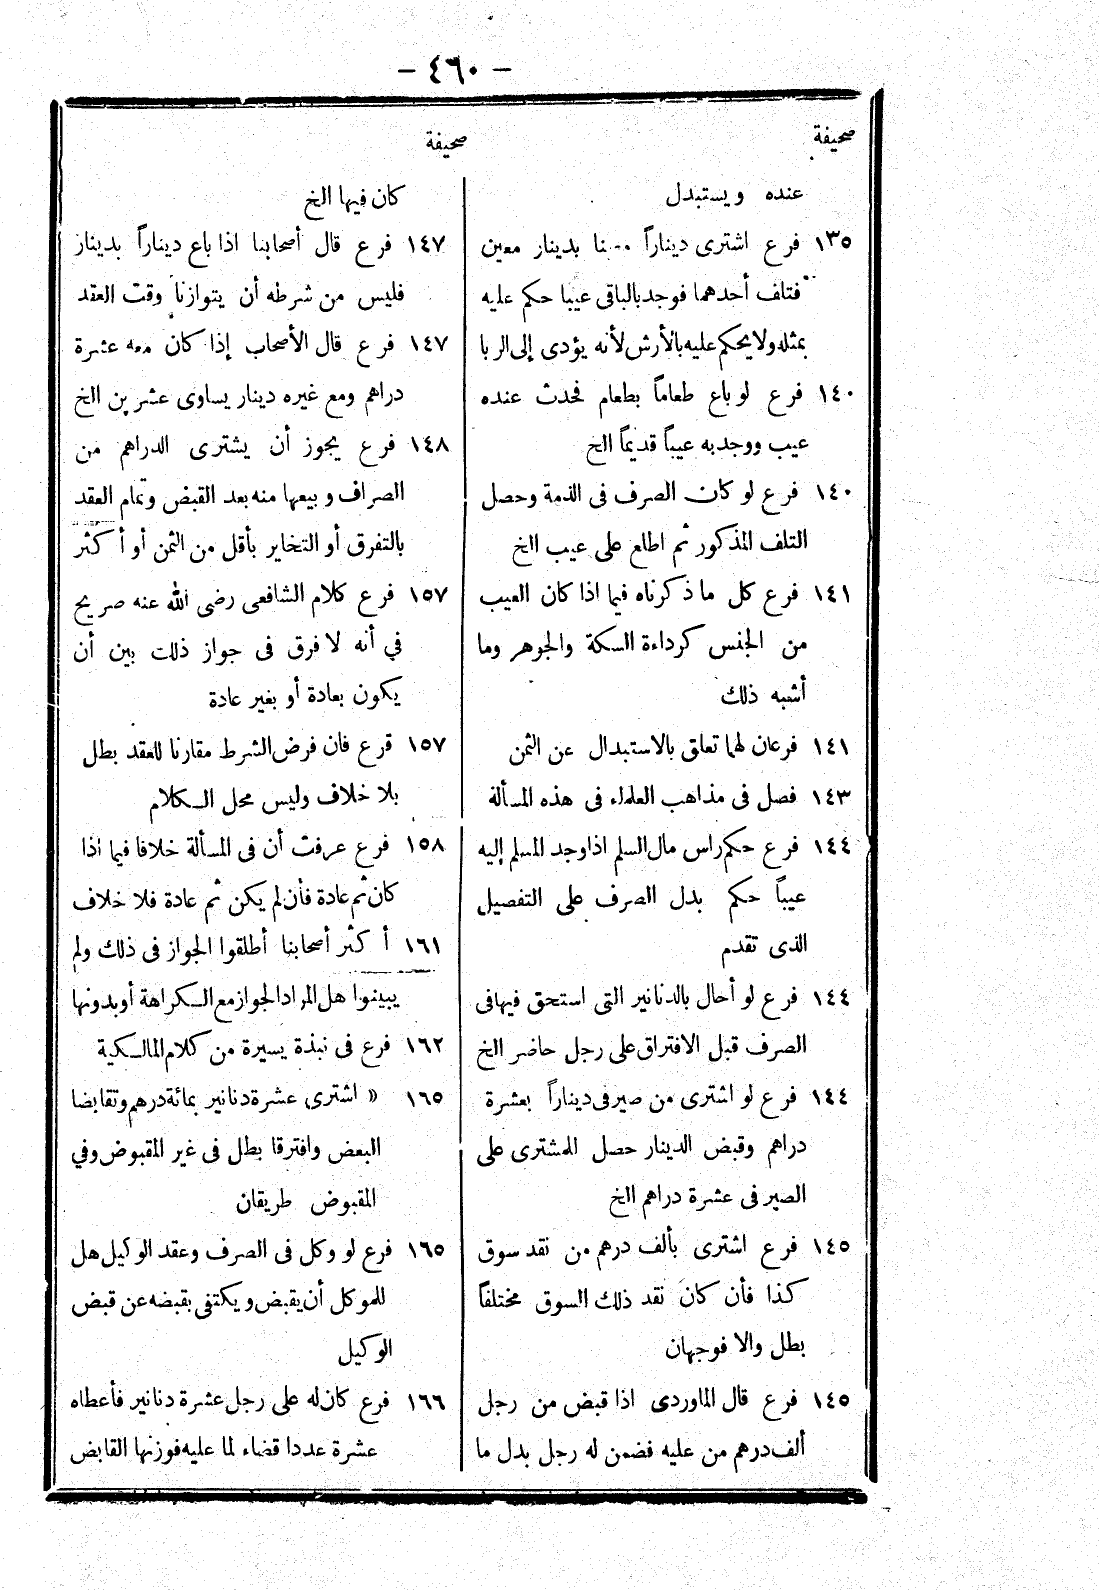 - ٤٦٠ -
صحيفة
عنده ويستبدل
١٣٥ فرع اشترى ديناراً بدينار معين
فتلف أحدهما فوجد بالباقى عيبا حكم عليه
بمثله ولا يحكم عليه بالأرش لأنه يؤدى إلى الربا
١٤٠ فرع لو باع طعاماً بطعام فحدث عنده
عيب ووجد به عيباً قديماً الخ
١٤٠ فرع لو كان الصرف فى الذمة وحصل
التلف المذكور ثم اطلع على عيب الخ
١٤١ فرع كل ما ذكرناه فيما اذا كان العيب
من الجنس كرداءة السكة والجوهر وما
أشبه ذلك
١٤١ فرعان لهما تعلق بالاستبدال عن الثمن
١٤٣ فصل فى مذاهب العلماء فى هذه المسألة
١٤٤ فرع حكم راس مال السلم اذا وجد المسلم إليه
عيباً حكم بدل الصرف على التفصيل
الذى تقدم
١٤٤ فرع لو أحال بالدنانير التى استحق فيها فى
الصرف قبل الافتراق على رجل حاضر الخ
١٤٤ فرع لو اشترى من صيرفى ديناراً بعشرة
دراهم وقبض الدينار حصل للمشترى على
الصيرفى عشرة دراهم الخ
١٤٥ فرع اشترى بألف درهم من نقد سوق
كذا فأن كان نقد ذلك السوق مختلفاً
بطل والا فوجهان
١٤٥ فرع قال الماوردى اذا قبض من رجل
ألف درهم من عليه فضمن له رجل بدل ما
صحيفة
كان فيها الخ
١٤٧ فرع قال أصحابنا اذا باع ديناراً بدينار
فليس من شرطه أن يتوازنا وقت العقد
١٤٧ فرع قال الأصحاب إذا كان معه عشرة
دراهم ومع غيره دينار يساوى عشرين الخ
١٤٨ فرع يجوز أن يشترى الدراهم من
الصراف وبيعها منه بعد القبض وتمام العقد
بالتفرق أو التخاير بأقل من الثمن أو أكثر
١٥٧ فرع كلام الشافعى رضى الله عنه صريح
في أنه لا فرق فى جواز ذلك بين أن
يكون بعادة أو بغير عادة
١٥٧ فرع فان فرض الشرط مقارنا للعقد بطل
بلا خلاف وليس محل الكلام
١٥٨ فرع عرفت أن فى المسألة خلافا فيما اذا
كان ثم عادة فأن لم يكن ثم عادة فلا خلاف
١٦١ أكثر أصحابنا أطلقوا الجواز فى ذلك ولم
يبينوا هل المراد الجواز مع الكراهة أو بدونها
١٦٢ فرع فى نبذة يسيرة من كلام المالكية
١٦٥ » اشترى عشرة دنانير بمائة درهم وتقابضا
البعض وافترقا بطل فى غير المقبوض وفي
المقبوض طريقان
١٦٥ فرع لو وكل فى الصرف وعقد الوكيل هل
للموكل أن يقبض ويكتفى بقبضه عن قبض
الوكيل
١٦٦ فرع كان له على رجل عشرة دنانير فأعطاه
عشرة عددا قضاء لما عليه فوزنها القابض